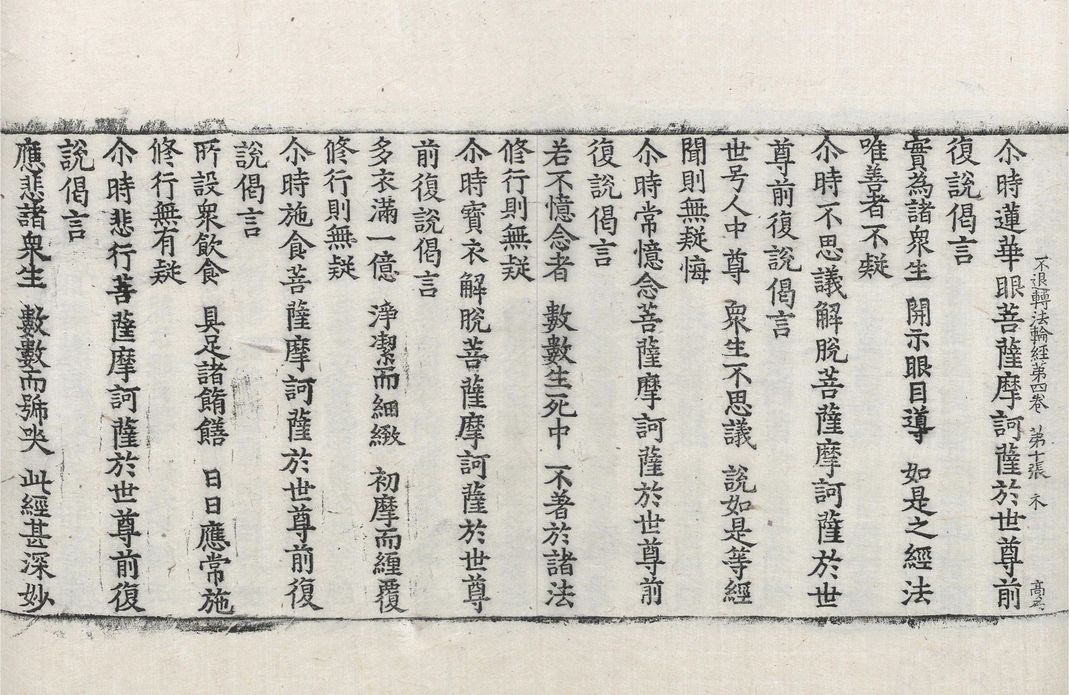 不退轉法輪經第四卷 第十張 木
尒時蓮華眼菩薩摩訶薩於世尊前
復說偈言
實為諸衆生 開示眼目導 如是之經法
唯善者不疑
尒時不思議解脫菩薩摩訶薩於世
尊前復說偈言
世号人中尊 衆生不思議 說如是等經
聞則無疑悔
尒時常憶念菩薩摩訶薩於世尊前
復說偈言
若不憶念者 數數生死中 不著於諸法
修行則無疑
尒時寶衣解脫菩薩摩訶薩於世尊
前復說偈言
多衣滿一億 淨潔而細緻 初摩而纏覆
修行則無疑
尒時施食菩薩摩訶薩於世尊前復
說偈言
所設衆飲食 具足諸餚饍 日日應常施
修行無有疑
尒時悲行菩薩摩訶薩於世尊前復
說偈言
應悲諸衆生 數數而號哭 此經甚深妙